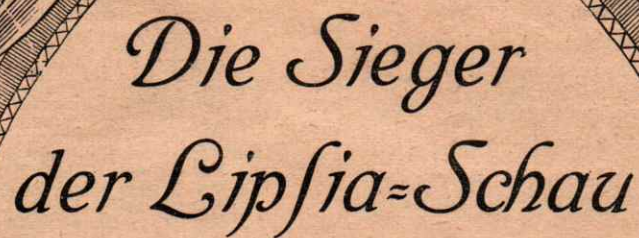 Die Sieger
der Lipſia⸗Schau